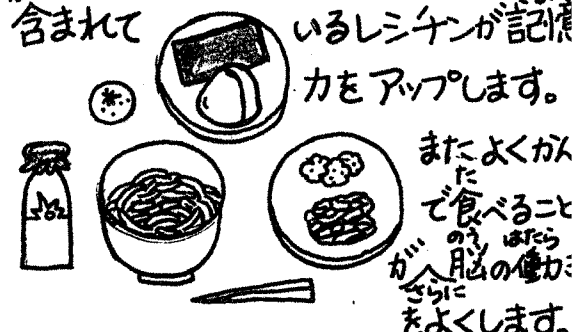 含まれて いるレシチンが記憶
力をアップします。
またよくかん
た
で食べること
のう はたら
が 脳の働き
さらに
をよくします。